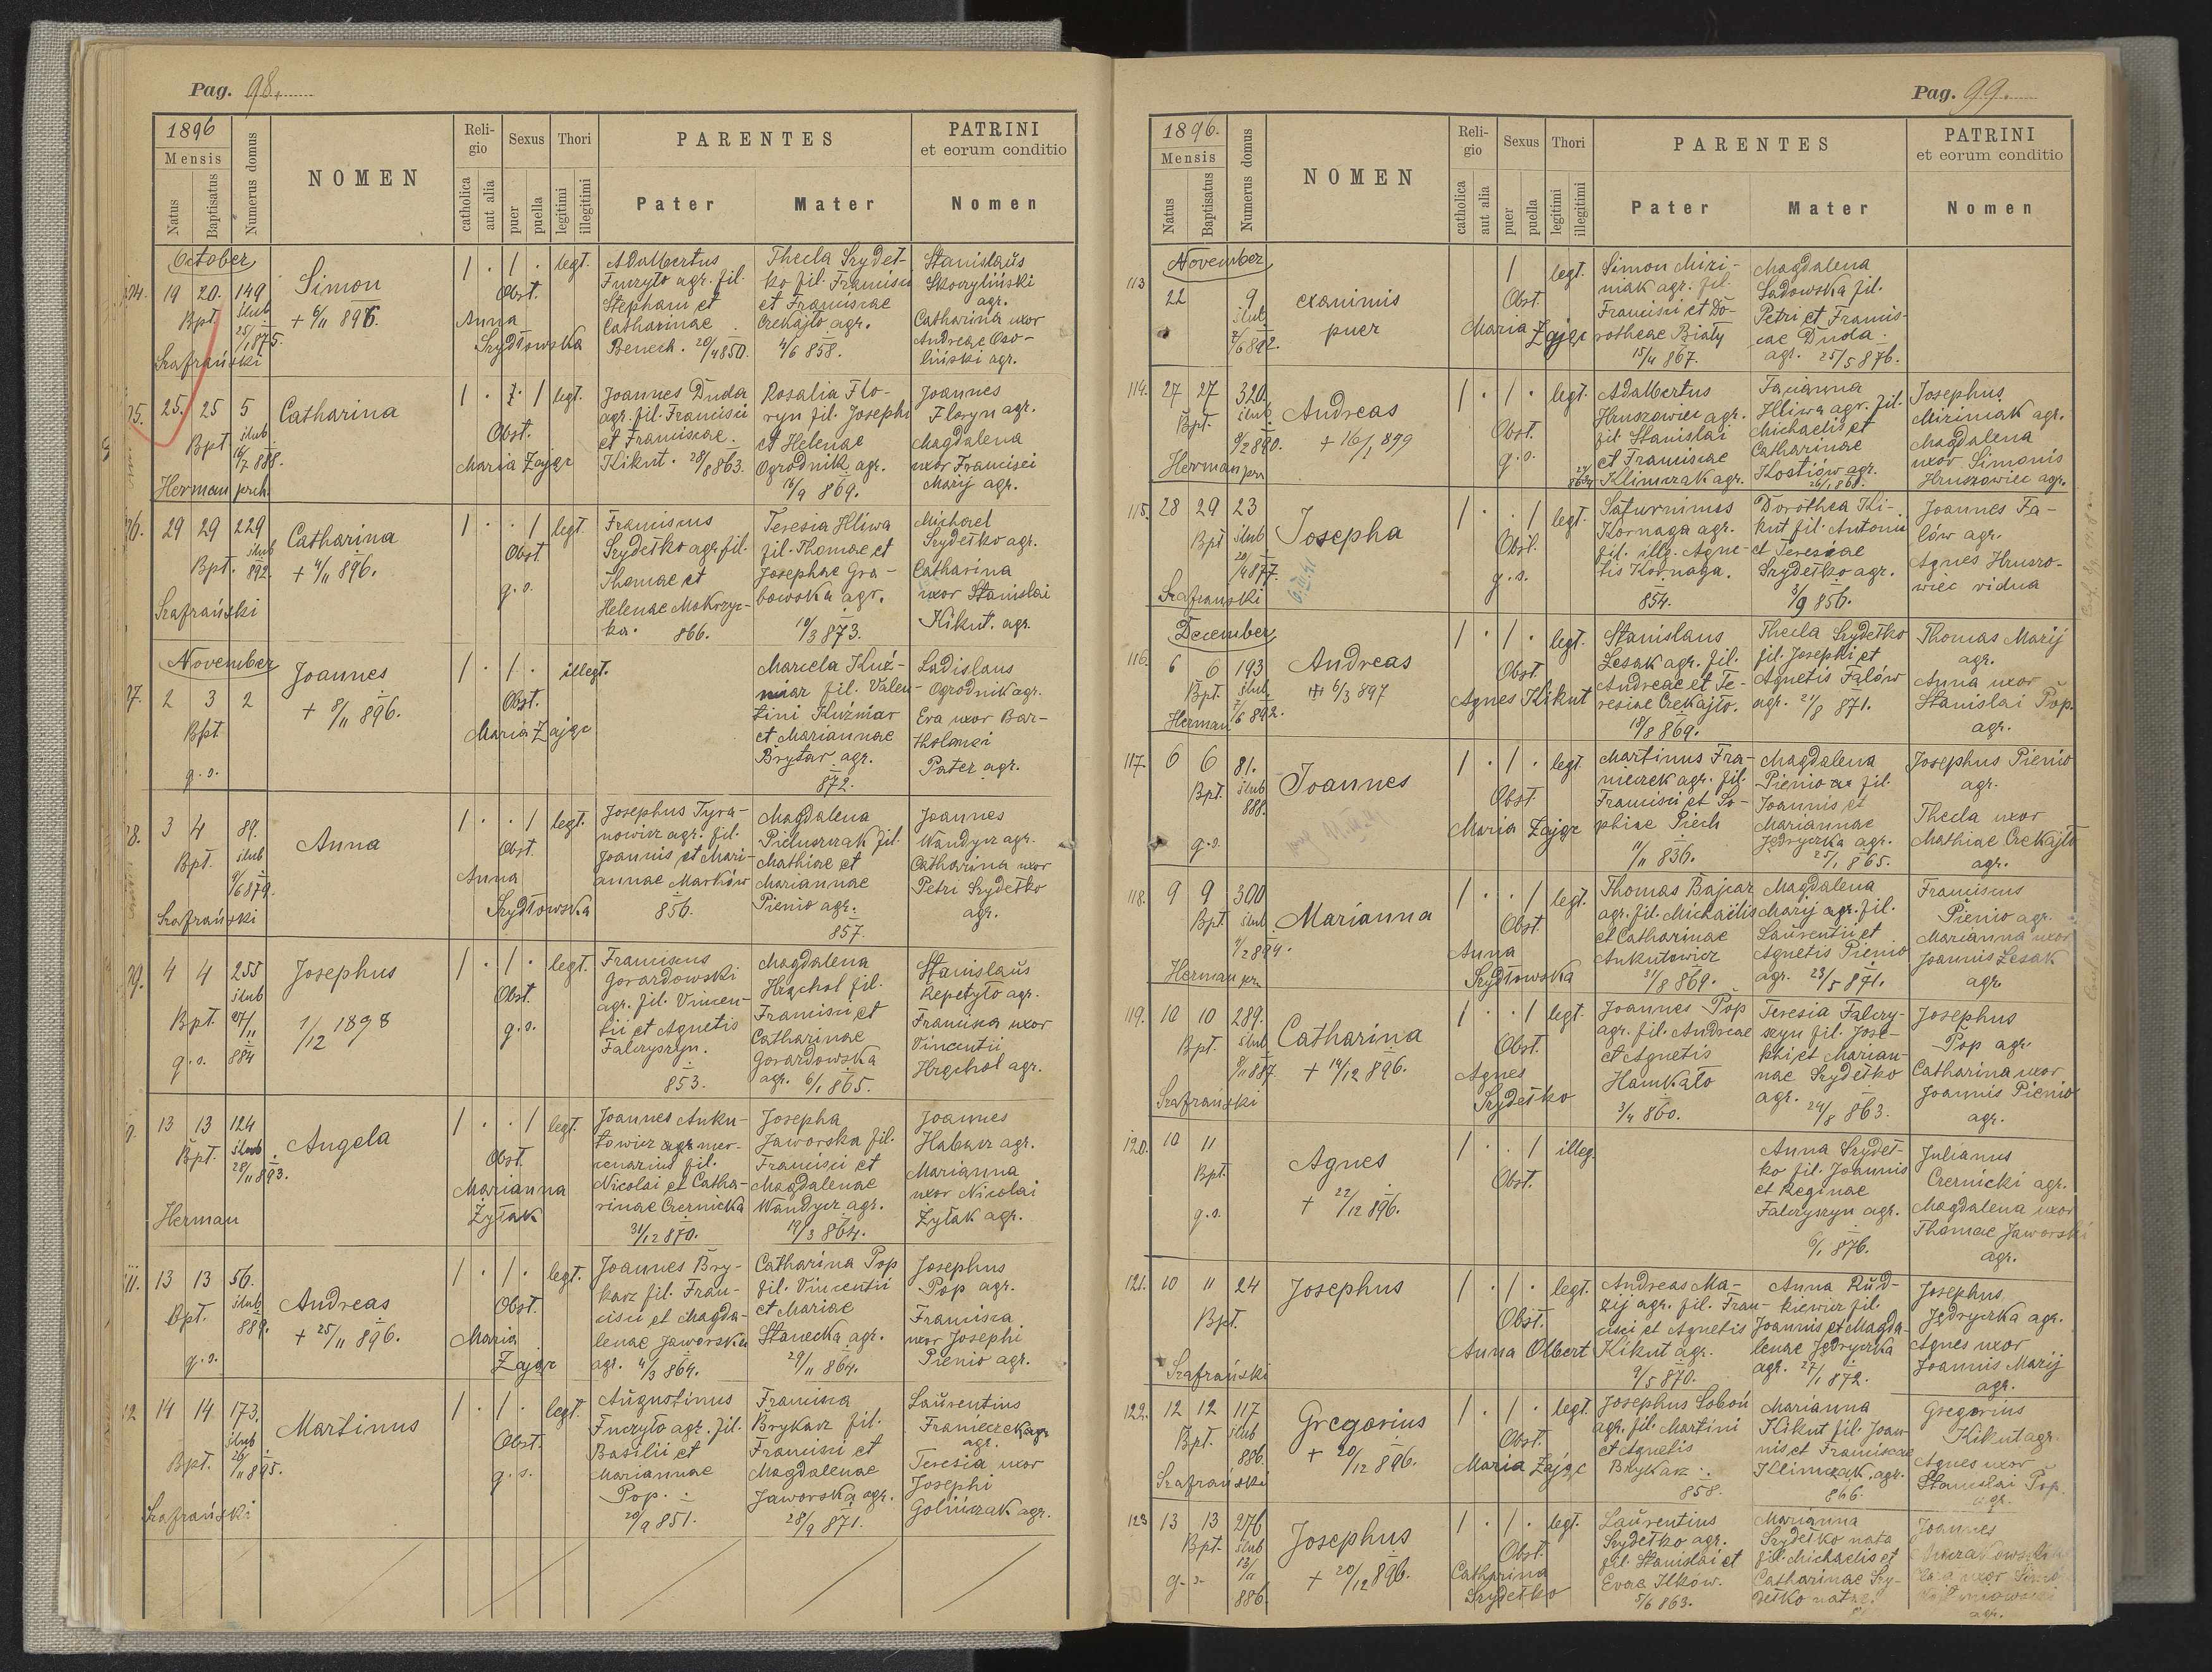 Pag. 98.
1896
Mensis
Natus
Baptisatus
Numerus domus
NOMEN
Religio
catholica
aut alia
Sexus
puer
puella
Thori
legitimi
illegitimi
PARENTES
Pater
Mater
PATRINI
et eorum conditio
Nomen
October
19 20. 149
Bpt. ślub
25/1 875.
Szafrański
Simon
+ 6/11 896.
1 . 1 . legt.
Obst.
Anna
Szydłowska
Adalbertus
Furzyło agr. fil.
Stephani et
Catharinae
Benech. 20/4 850.
Thecla Szydeł-
ko fil. Francisci
et Franciscae
Czekajło agr.
4/6 858.
Stanislaus
Skoczyliński
agr.
Catharina uxor
Andreae Oso-
liński agr.
25. 25 5
Bpt ślub
16/7 888.
Herman prch.
Catharina
1 . . 1 legt.
Obst.
Maria Zając
Joannes Duda
agr. fil. Francisci
et Franciscae
Kikut. 28/8 863.
Rosalia Flo-
ryn fil. Josephi
et Helenae
Ogrodnik agr.
16/9 869.
Joannes
Floryn agr.
Magdalena
uxor Francisci
Marij agr.
29 29 229
Bpt. ślub
892.
Szafrański
Catharina
+ 4/11 896.
1 . . 1 legt.
Obst
g. s.
Franciscus
Szydełko agr. fil.
Thomae et
Helenae Mokrzyc-
ka. 866.
Teresia Hliwa
fil. Thomae et
Josephae Gra-
bowska agr.
10/3 873.
Michael
Szydełko agr.
Catharina
uxor Stanislai
Kikut. agr.
November
2 3 2
Bpt
g. s.
Joannes
+ 8/11 896.
1 . 1 . illegt.
Obst.
Maria Zając
Marcela Kuź-
niar fil. Valen-
tini Kuźniar
et Mariannae
Brytar agr.
872.
Ladislaus
Ogrodnik agr.
Eva uxor Bar-
tholomaei
Pater agr.
3 4 89.
Bpt. ślub
9/6 879.
Szafrański
Anna
1 . . 1 legt.
Obst.
Anna
Szydłowska
Josephus Tyra-
nowicz agr. fil.
Joannis et Mari-
annae Marków
856.
Magdalena
Pieluszczak fil.
Mathiae et
Mariannae
Pienio agr.
857.
Joannes
Wandycz agr.
Catharina uxor
Petri Szydełko
agr.
4 4 255
ślub
Bpt. 27/11
g. s. 884
Josephus
1/12 1898
1 . 1 . legt.
Obst.
g. s.
Franciscus
Gorardowski
agr. fil. Vincen-
tii et Agnetis
Falczyszyn.
853.
Magdalena
Hrychol fil.
Francisci et
Catharinae
Gorardowska
agr. 6/1 865.
Stanislaus
Repetyło agr.
Francisca uxor
Vincentii
Hrychol agr.
13 13 124
Bpt. ślub
28/11 893.
Herman
Angela
1 . . 1 legt.
Obst.
Marianna
Żyłak
Joannes Anku-
towicz agr. mer-
cenarius fil.
Nicolai et Catha-
rinae Czernicka
31/12 870.
Josepha
Jaworska fil.
Francisci et
Magdalenae
Wandycz agr.
19/3 864.
Joannes
Habucz agr.
Marianna
uxor Nicolai
Żyłak agr.
13 13 56.
Bpt. ślub
889.
g. s.
Andreas
+ 25/11 896.
1 . 1 . legt.
Obst.
Maria
Zając
Joannes Bry-
karz fil. Fran-
cisci et Magda-
lenae Jaworska
agr. 4/3 864.
Catharina Pop
fil. Vincentii
et Mariae
Stanecka agr.
29/11 864.
Josephus
Pop agr.
Francisca
uxor Josephi
Pienio agr.
14 14 173.
ślub
Bpt. 26/11 895.
Szafrański
Martinus
1 . 1 . legt.
Obst.
g. s.
Augustinus
Furzyło agr. fil.
Basilii et
Mariannae
Pop.
20/9 851.
Francisca
Brykarz fil.
Francisci et
Magdalenae
Jaworska agr.
28/9 871.
Laurentius
Franieczek agr.
agr.
Teresia uxor
Josephi
Goliniczak agr.
Pag. 99.
1896.
Mensis
Natus
Baptisatus
Numerus domus
NOMEN
Religio
catholica
aut alia
Sexus
puer
puella
Thori
legitimi
illegitimi
PARENTES
Pater
Mater
PATRINI
et eorum conditio
Nomen
November
113
22 9
ślub
7/6 892.
exanimis
puer
1 legt.
Obst.
Maria Zając
Simon Mizi-
niak agr. fil.
Francisci et Do-
rotheae Biały
15/11 867.
Magdalena
Sadowska fil.
Petri et Francis-
cae Duda
agr. 25/5 876.
114. 27 27 320.
Bpt. ślub
9/2 890.
Herman pr.
Andreas
+ 16/1 899
1 . 1 . legt.
Obst.
g. s.
Adalbertus
Hruszowiec agr.
fil Stanislai
et Franciscae
Klimczak agr.
Marianna
Hliwa agr. fil.
Michaelis et
Catharinae
Kostiów agr.
26/1 868.
Josephus
Miziniak agr.
Magdalena
uxor Simonis
Hruszowiec agr.
115. 28 29 23
Bpt ślub
20/4 877.
Szafrański
Josepha
1 . . 1 legt.
Obst.
g. s.
Saturninus
Kornaga agr.
fil. illg. Agne-
tis Kornaga.
854.
Dorothea Ki-
kut fil. Antonii
et Teresiae
Szydełko agr.
3/9 856.
Joannes Fa-
lów agr.
Agnes Hruszo-
wiec vidua
December
116. 6 6 193
Bpt. ślub
7/6 892.
Herman
Andreas
+ 6/3 897
1 . 1 . legt.
Obst.
Agnes Kikut
Stanislaus
Lesak agr. fil.
Andreae et Te-
resiae Czekajło.
18/8 869.
Thecla Szydełko
fil. Josephi et
Agnetis Falów
agr. 21/8 871.
Thomas Marij
agr.
Anna uxor
Stanislai Pop.
agr.
117. 6 6 81.
Bpt. ślub
888.
g. s.
Joannes
1 . 1 . legt.
Obst.
Maria Zając
Martinus Fra-
nieczek agr. fil.
Francisci et So-
phiae Piech
11/11 836.
Magdalena
Pienio fil.
Joannis et
Mariannae
Jędryczka agr.
25/1 865.
Josephus Pienio
agr.
Thecla uxor
Mathiae Czekajło
agr.
118. 9 9 300
Bpt ślub
4/2 894.
Herman pr.
Marianna
1 . . 1 legt.
Obst.
Anna
Szydłowska
Thomas Bajcar
agr. fil. Michaelis
et Catharinae
Ankutowicz
31/8 869.
Magdalena
Marij agr. fil.
Laurentii et
Agnetis Pienio
agr. 23/5 871.
Franciscus
Pienio agr.
Marianna uxor
Joannis Lesak
agr.
119. 10 10 289.
Bpt. ślub
9/11 887
Szafrański
Catharina
+ 14/12 896.
1 . . 1 legt.
Obst.
Agnes
Szydełko
Joannes Pop
agr. fil. Andreae
et Agnetis
Hamkało
3/4 860.
Teresia Falczy-
szyn fil. Jose-
phi et Marian-
nae Szydełko
agr. 24/8 863.
Josephus
Pop agr.
Catharina uxor
Joannis Pienio
agr.
120. 10 11
Bpt.
g. s.
Agnes
+ 22/12 896.
1 . . 1 illeg.
Obst.
Anna Szydeł-
ko fil. Joannis
et Reginae
Falczyszyn agr.
6/1 876.
Julianus
Czernicki agr.
Magdalena uxor
Thomae Jaworski
agr.
121. 10 11 24
Bpt.
Szafrański
Josephus
1 . 1 . legt.
Obst.
Anna Olbert
Andreas Ma-
zij agr. fil. Fran-
cisci et Agnetis
Kikut agr.
9/5 870.
Anna Rud-
kiewicz fil.
Joannis et Magda-
lenae Jędryczka
agr. 27/1 872.
Josephus
Jędryczka agr.
Agnes uxor
Joannis Marij
agr.
122. 12 12 117
Bpt. ślub
886.
Szafrański
Gregorius
+ 20/12 896.
1 . 1 . legt.
Obst.
Maria Zając
Josephus Soboń
agr. fil. Martini
et Agnetis
Brykarz
858.
Marianna
Kikut fil. Joan-
nis et Franciscae
Klimczak. agr.
866.
Gregorius
Kikut agr.
Agnes uxor
Stanislai Pop.
agr.
123 13 13 276
Bpt. ślub
13/11
g. s. 886.
Josephus
+ 20/12 896.
1 . 1 . legt.
Obst.
Catharina
Szydełko
Laurentius
Szydełko agr.
fil. Stanislai et
Evae Ilków.
5/6 863.
Marianna
Szydełko nata
fil. Michaelis et
Catharinae Szy-
dełko natae.
Joannes
uxor
agr.